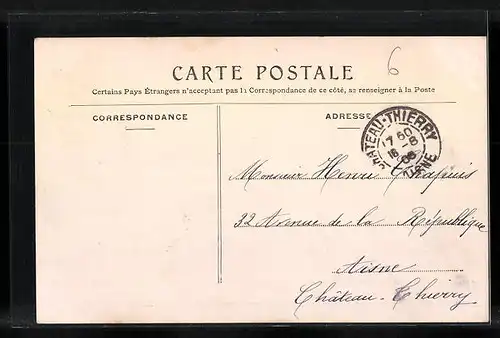 6
CARTE POSTALE
Certains Pays Étrangers n'acceptant pas la Correspondance de ce côté, se renseigner à la Poste
CORRESPONDANCE
ADRESSE
CHATEAU-THIERRY
17 50
16 - 6
06
AISNE
Monsieur Henri
32 Avenue de la République
Aisne
Château-Thierry